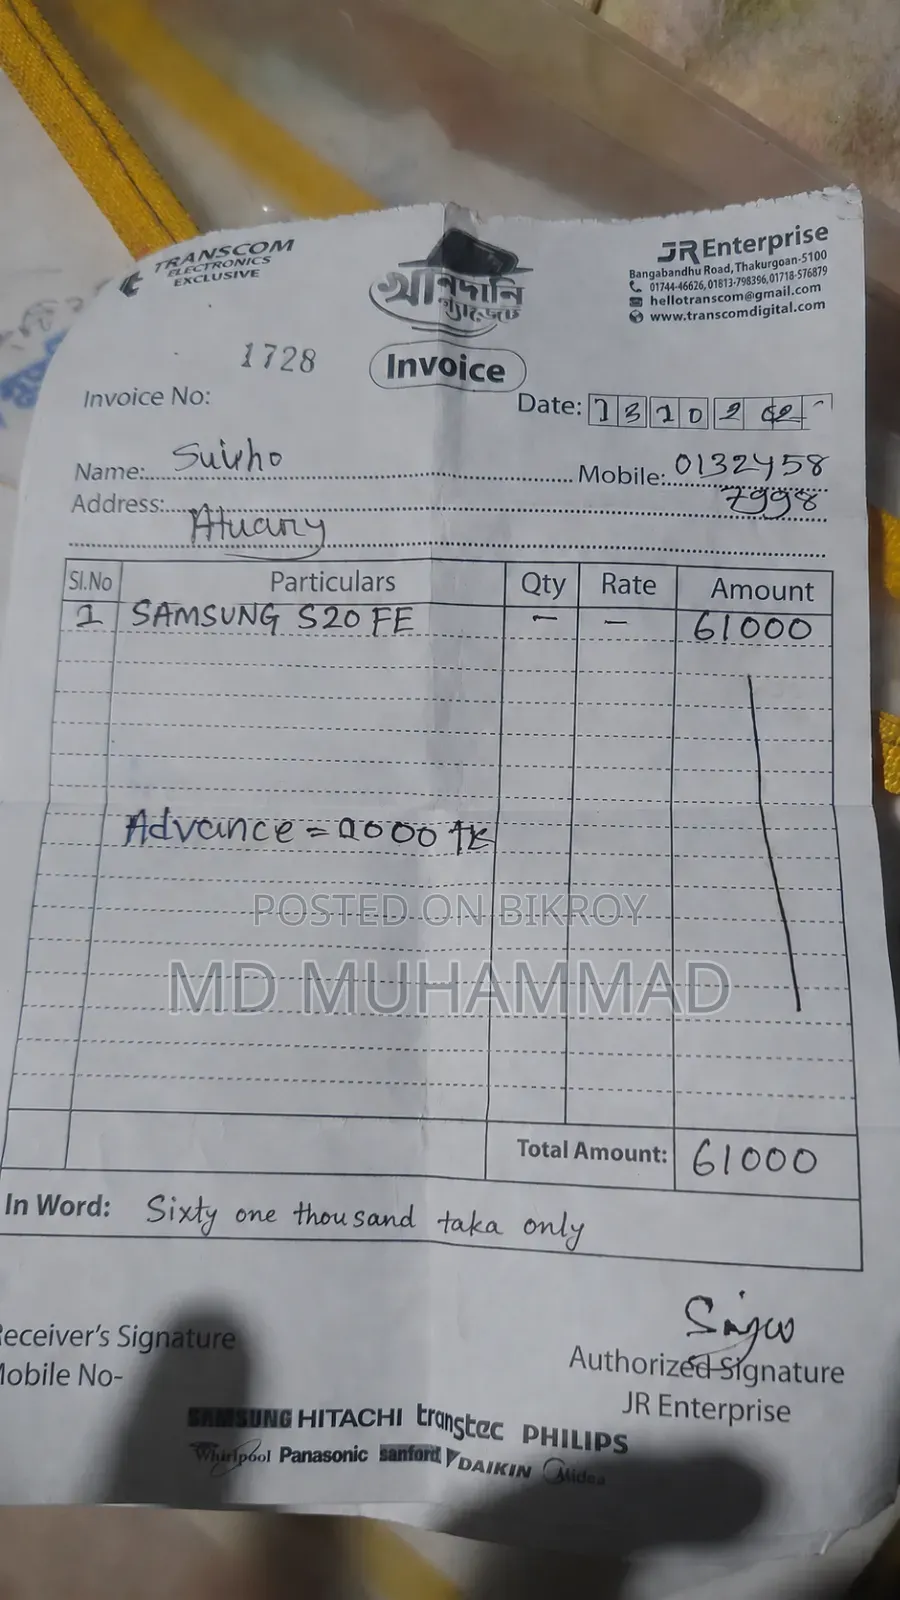 TRANSCOM
ELECTRONICS
EXCLUSIVE
খানদানি
গ্যাজেট
JR Enterprise
Bangabandhu Road, Thakurgoan-5100
01744-46626, 01813-798396, 01718-576879
hellotranscom@gmail.com
www.transcomdigital.com
1728
Invoice
Invoice No:
Date: 13 10 2
Name:
Mobile: 01324587998
Address:
Sl.No Particulars Qty Rate Amount
1 SAMSUNG S20 FE - - 61000
Advance = 2000 tk
POSTED ON BIKROY
MD MUHAMMAD
Total Amount: 61000
In Word: Sixty one thousand taka only
Receiver's Signature
Mobile No-
Authorized Signature
JR Enterprise
SAMSUNG HITACHI transtec PHILIPS
Whirlpool Panasonic sanford DAIKIN Midea